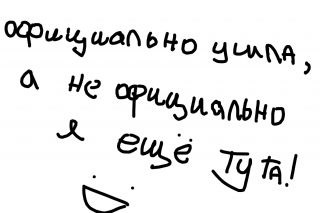 официально ушла,
а не официально
я ещё тута!